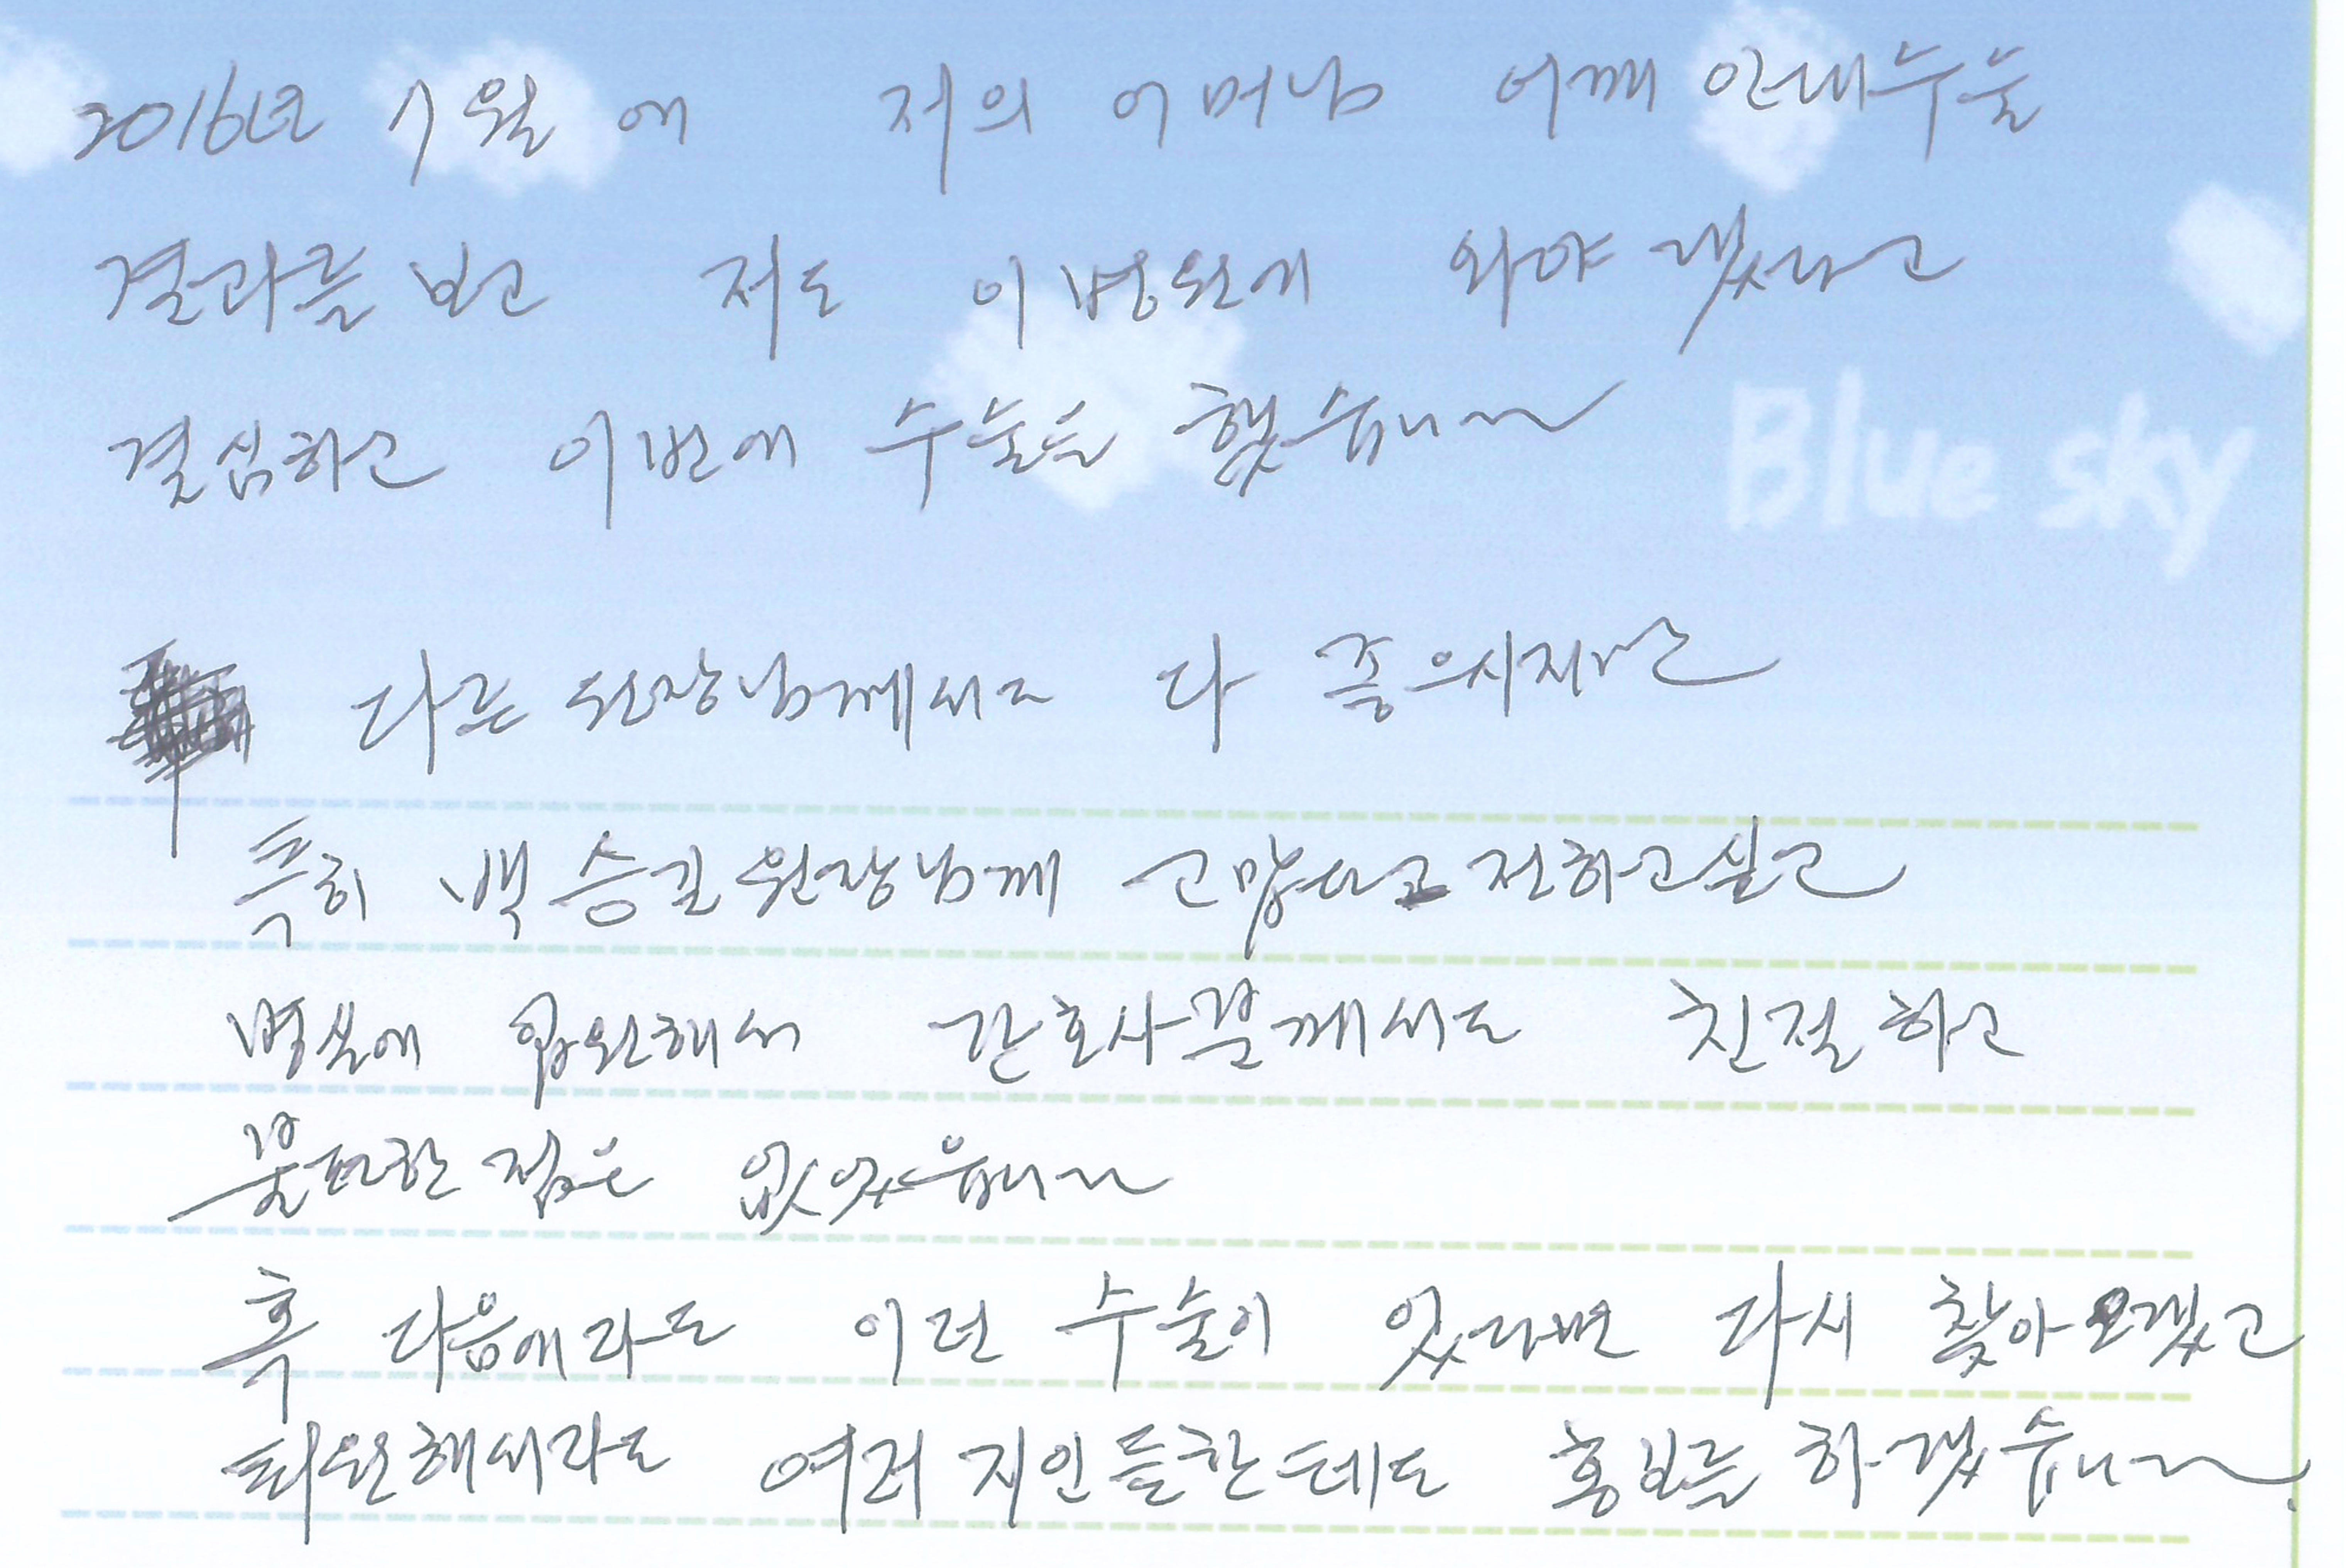 2016년 7월에 저의 어머님 어깨 인대수술
결과를 보고 저도 이 병원에 와야 겠다고
결심하고 이번에 수술을 했습니다
Blue sky
다른 원장님께서도 다 좋으시지만
특히 백승길 원장님께 고맙다고 전하고 싶고
병실에 입원해서 간호사분께서도 친절하고
불편한 점은 없었읍니다
혹 다음에라도 이런 수술이 있다면 다시 찾아오겠고
퇴원해서라도 여러 지인들한테도 홍보를 하겠습니다.